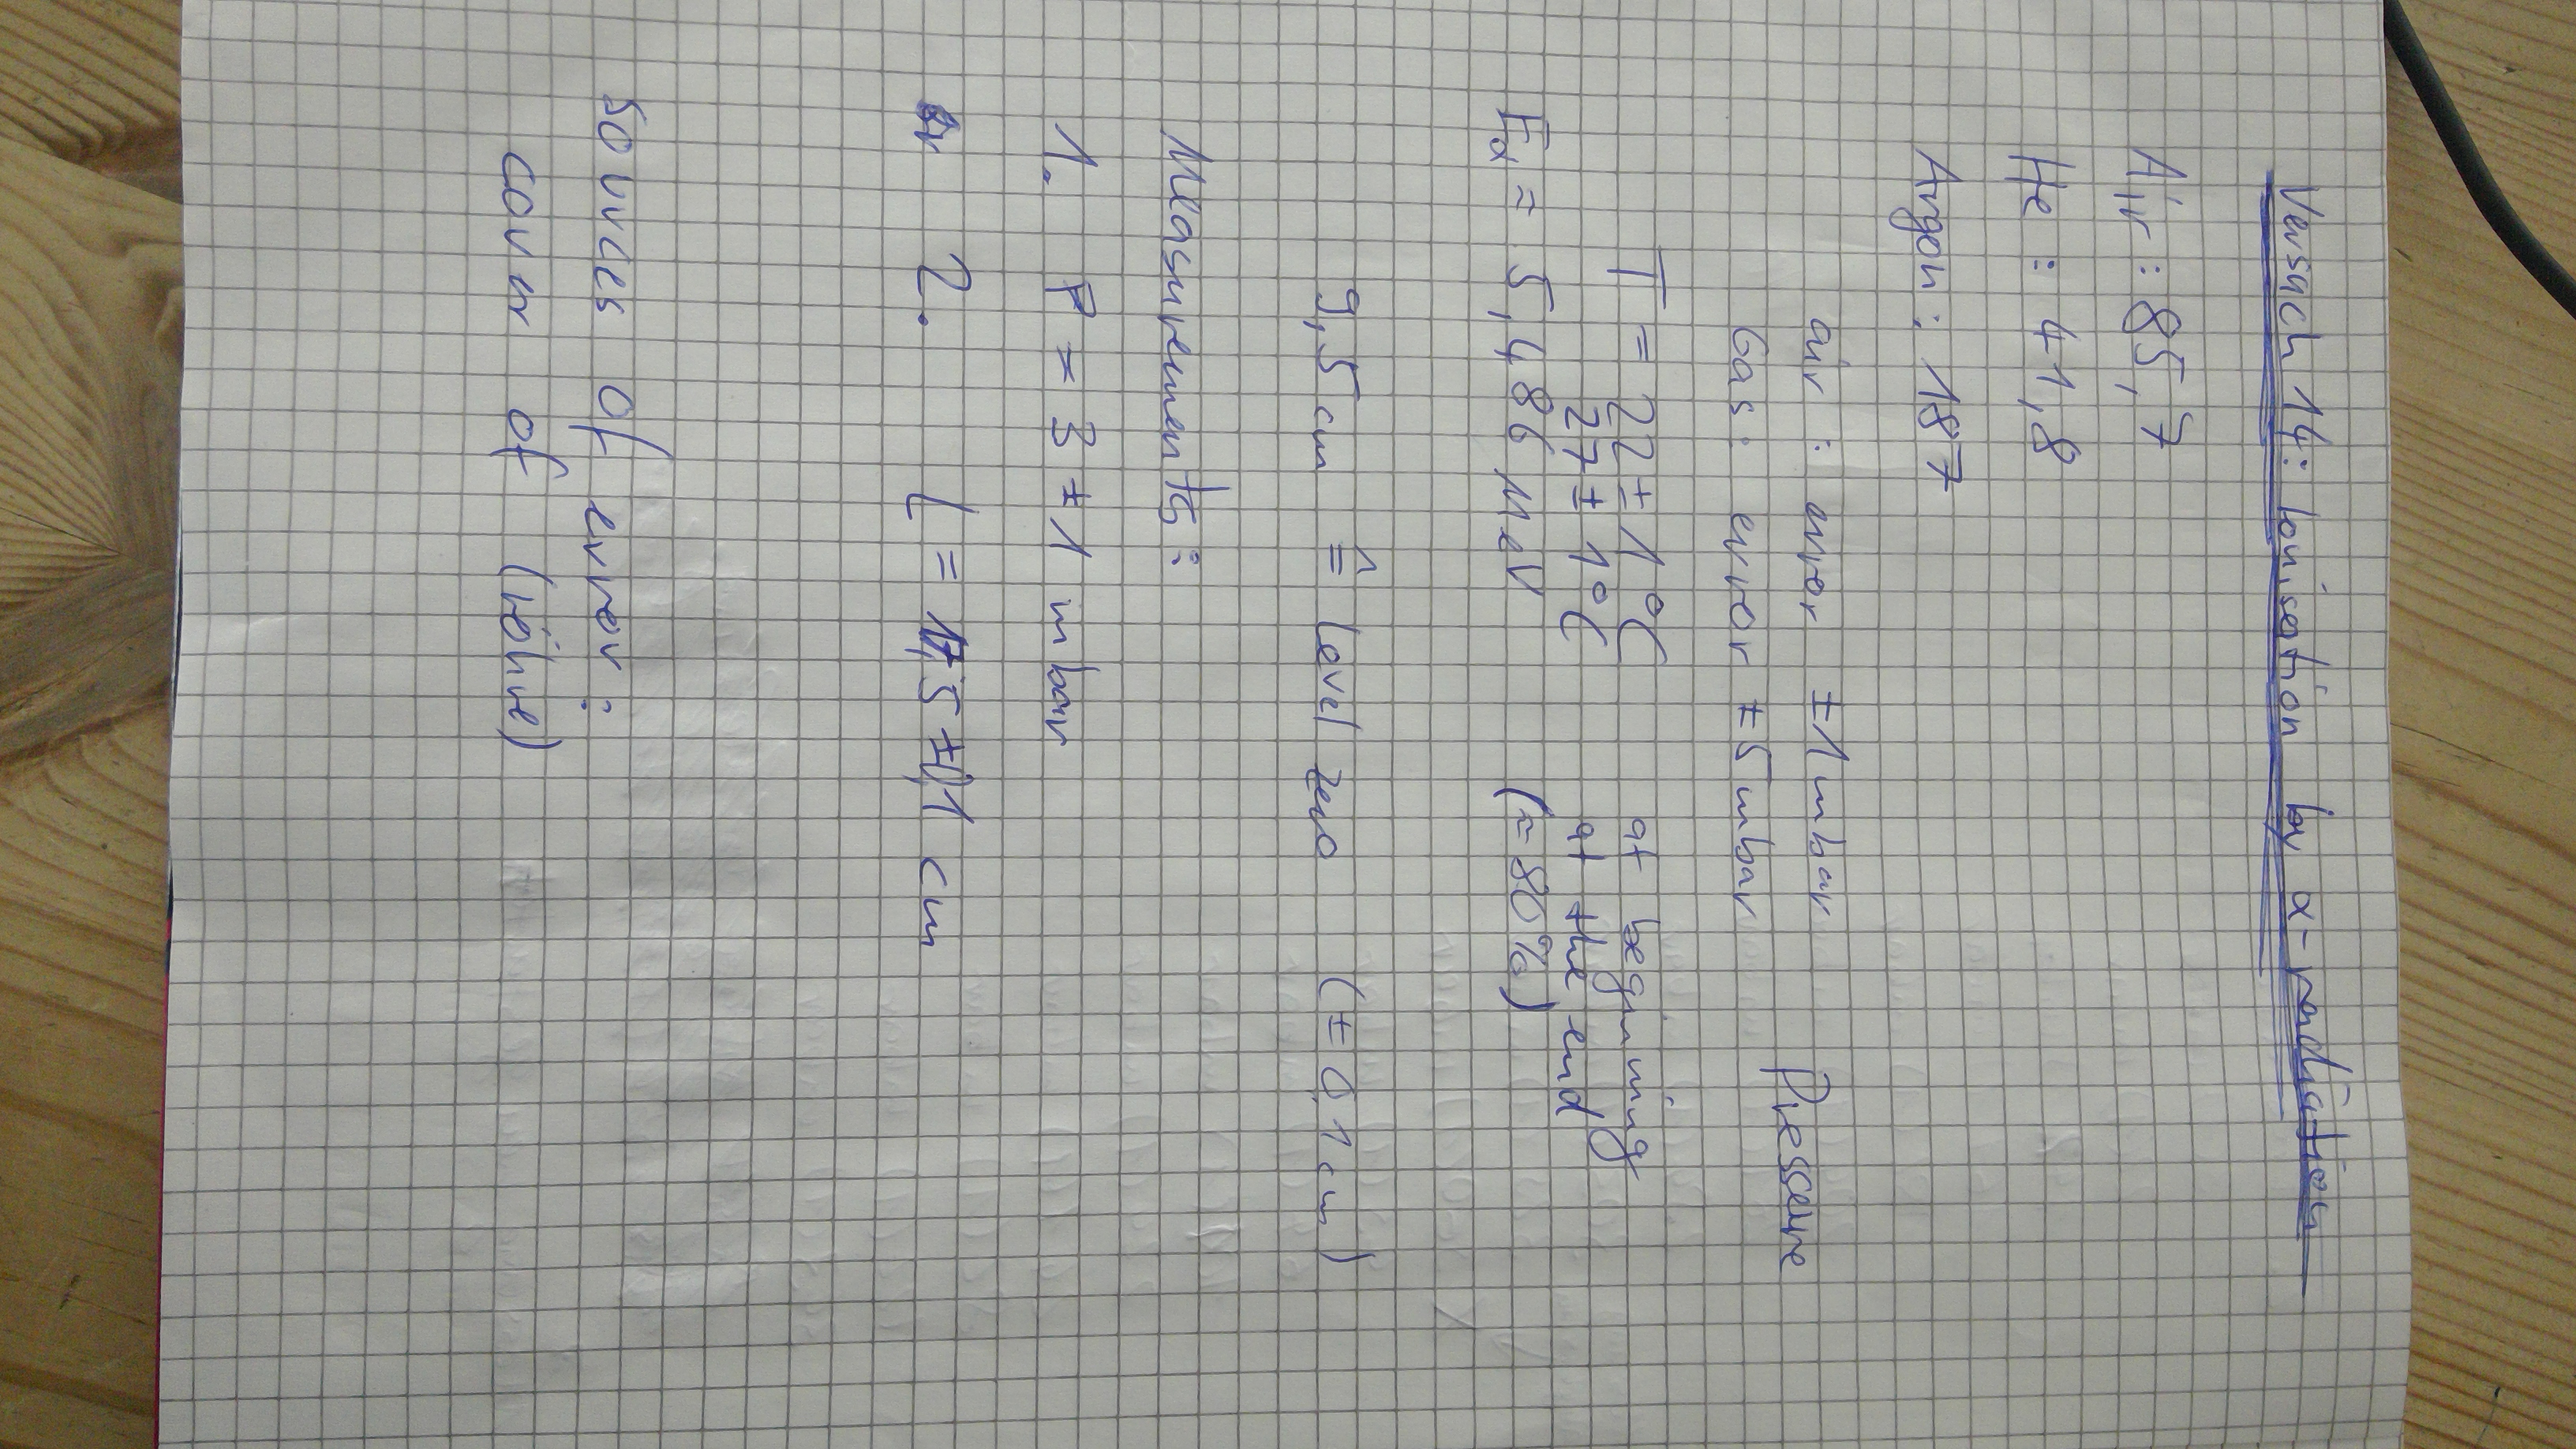 Versuch 14: Ionisation by α-radiation
Air : 85,7
He : 41,8
Argon : 187
air : error ±1 mbar Pressure
Gas : error ±5 mbar
T = 22 ± 1 °C at beginning
27 ± 1 °C at the end
Eα = 5,486 MeV (≈ 80%)
9,5 cm ≙ level zero (± 0,1 cm)
Measurements :
1. P = 3 ± 1 mbar
2. l = 5 ± 0,1 cm
sources of error :
cover of (röhre)